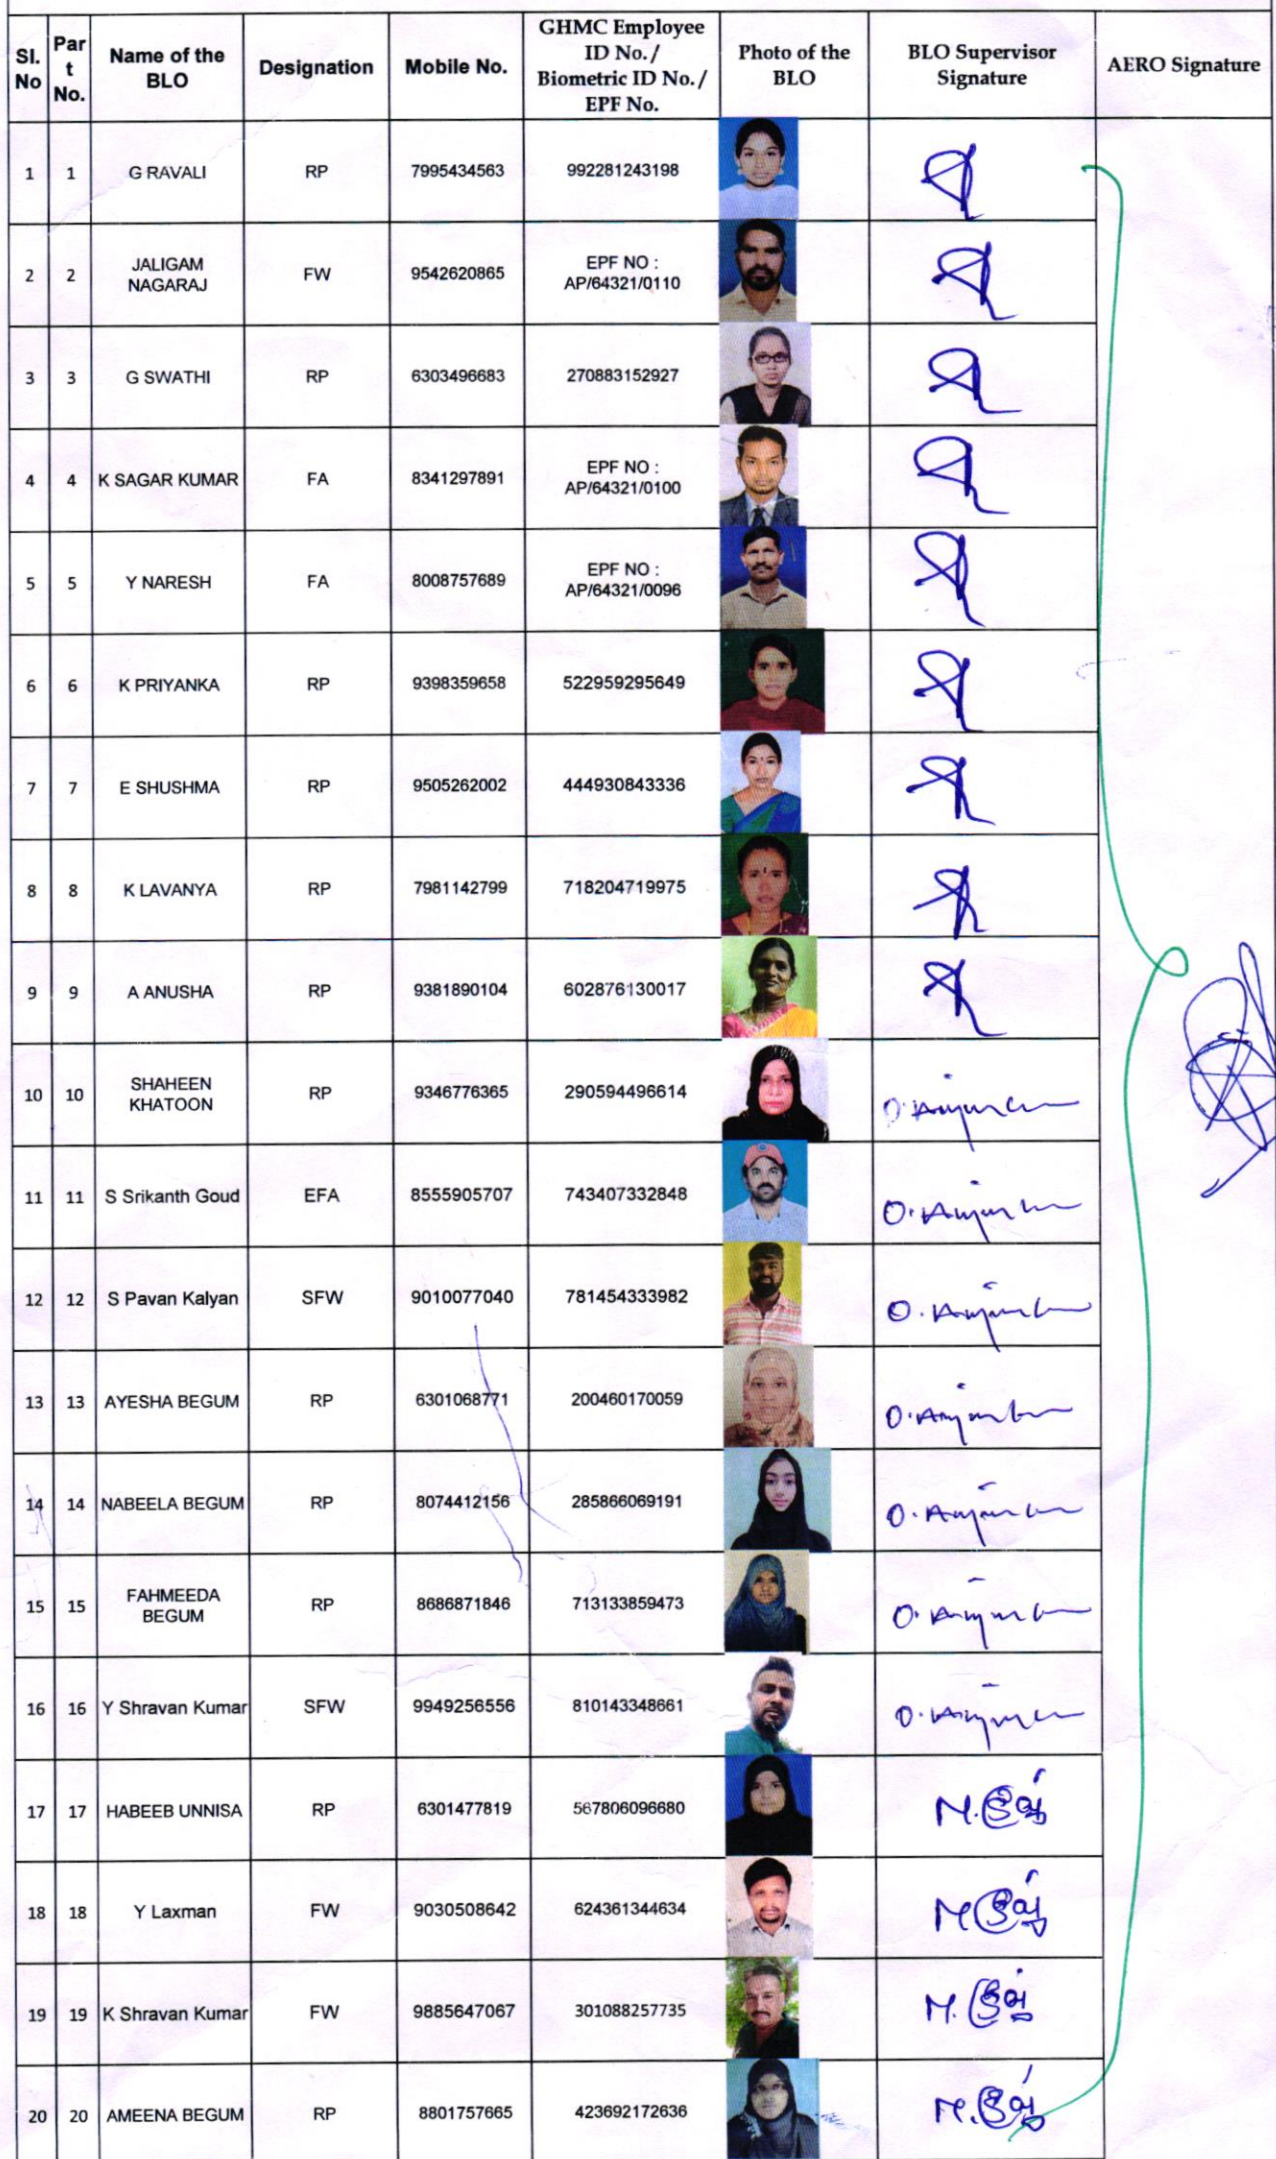 Sl. No Par t No. Name of the BLO Designation Mobile No. GHMC Employee ID No./ Biometric ID No./ EPF No. Photo of the BLO BLO Supervisor Signature AERO Signature
1 1 G RAVALI RP 7995434563 992281243198
2 2 JALIGAM NAGARAJ FW 9542620865 EPF NO : AP/64321/0110
3 3 G SWATHI RP 6303496683 270883152927
4 4 K SAGAR KUMAR FA 8341297891 EPF NO : AP/64321/0100
5 5 Y NARESH FA 8008757689 EPF NO : AP/64321/0096
6 6 K PRIYANKA RP 9398359658 522959295649
7 7 E SHUSHMA RP 9505262002 444930843336
8 8 K LAVANYA RP 7981142799 718204719975
9 9 A ANUSHA RP 9381890104 602876130017
10 10 SHAHEEN KHATOON RP 9346776365 290594496614
11 11 S Srikanth Goud EFA 8555905707 743407332848
12 12 S Pavan Kalyan SFW 9010077040 781454333982
13 13 AYESHA BEGUM RP 6301068771 200460170059
14 14 NABEELA BEGUM RP 8074412156 285866069191
15 15 FAHMEEDA BEGUM RP 8686871846 713133859473
16 16 Y Shravan Kumar SFW 9949256556 810143348661
17 17 HABEEB UNNISA RP 6301477819 567806096680
18 18 Y Laxman FW 9030508642 624361344634
19 19 K Shravan Kumar FW 9885647067 301088257735
20 20 AMEENA BEGUM RP 8801757665 423692172636